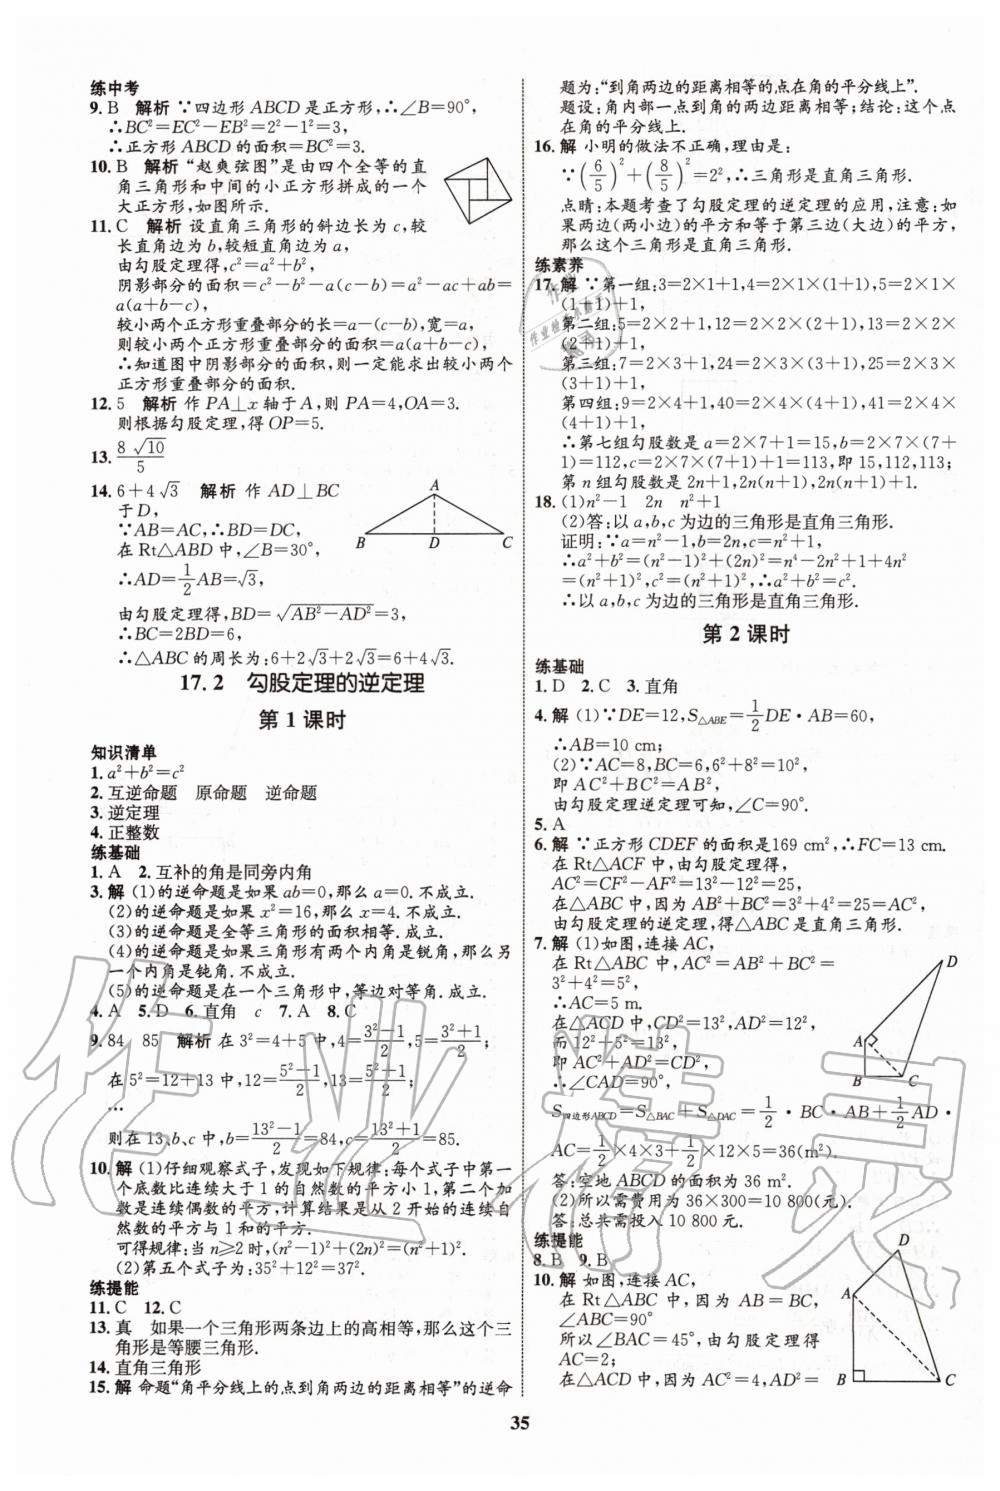 练中考
9. B　解析　∵四边形 ABCD 是正方形,∴∠B=90°,
∴BC²=EC²-EB²=2²-1²=3,
∴正方形 ABCD 的面积=BC²=3.
10. B　解析　“赵爽弦图”是由四个全等的直
角三角形和中间的小正方形拼成的一个
大正方形,如图所示.
11. C　解析　设直角三角形的斜边长为 c,较
长直角边为 b,较短直角边为 a,
由勾股定理得,c²=a²+b²,
阴影部分的面积=c²-b²-a(c-b)=a²-ac+ab=
a(a+b-c),
较小两个正方形重叠部分的长=a-(c-b),宽=a,
则较小两个正方形重叠部分的面积=a(a+b-c),
∴知道图中阴影部分的面积,一定能求出较小两个
正方形重叠部分的面积.
12. 5　解析　作 PA⊥x 轴于 A,则 PA=4,OA=3.
则根据勾股定理,得 OP=5.
13. 8√10/5
14. 6+4√3　解析　作 AD⊥BC
于 D,
∵AB=AC,∴BD=DC,
在 Rt△ABD 中,∠B=30°,
∴AD=1/2AB=√3,
由勾股定理得,BD=√(AB²-AD²)=3,
∴BC=2BD=6,
∴△ABC 的周长为:6+2√3+2√3=6+4√3.
A
B D C
17.2　勾股定理的逆定理
第 1 课时
知识清单
1. a²+b²=c²
2. 互逆命题　原命题　逆命题
3. 逆定理
4. 正整数
练基础
1. A　2. 互补的角是同旁内角
3. 解　(1)的逆命题是如果 ab=0,那么 a=0.不成立.
(2)的逆命题是如果 x²=16,那么 x=4.不成立.
(3)的逆命题是全等三角形的面积相等.成立.
(4)的逆命题是如果三角形有两个内角是锐角,那么另
一个内角是钝角.不成立.
(5)的逆命题是在一个三角形中,等边对等角.成立.
4. A　5. D　6. 直角　c　7. A　8. C
9. 84　85　解析　在 3²=4+5 中,4=(3²-1)/2,5=(3²+1)/2;
在 5²=12+13 中,12=(5²-1)/2,13=(5²+1)/2;
…
则在 13、b、c 中,b=(13²-1)/2=84,c=(13²+1)/2=85.
10. 解　(1)仔细观察式子,发现如下规律:每个式子中第一
个底数比连续大于 1 的自然数的平方小 1,第二个加
数是连续偶数的平方,计算结果是从 2 开始的连续
自然数的平方与 1 和的平方.
可得规律:当 n≥2 时,(n²-1)²+(2n)²=(n²+1)².
(2)第五个式子为:35²+12²=37².
练提能
11. C　12. C
13. 真　如果一个三角形两条边上的高相等,那么这个三
角形是等腰三角形.
14. 直角三角形
15. 解　命题“角平分线上的点到角两边的距离相等”的逆命
题为:“到角两边的距离相等的点在角的平分线上”.
题设:角内部一点到角的两边距离相等;结论:这个点
在角的平分线上.
16. 解　小明的做法不正确,理由是:
∵(6/5)²+(8/5)²=2²,∴三角形是直角三角形.
点睛:本题考查了勾股定理的逆定理的应用,注意:如
果两边(两小边)的平方和等于第三边(大边)的平方,
那么这个三角形是直角三角形.
练素养
17. 解　∵第一组:3=2×1+1,4=2×1×(1+1),5=2×1×
(1+1)+1,
第二组:5=2×2+1,12=2×2×(2+1),13=2×2×
(2+1)+1,
第三组:7=2×3+1,24=2×3×(3+1),25=2×3×
(3+1)+1,
第四组:9=2×4+1,40=2×4×(4+1),41=2×4×
(4+1)+1,
∴第七组勾股数是 a=2×7+1=15,b=2×7×(7+
1)=112,c=2×7×(7+1)+1=113,即 15,112,113;
第 n 组勾股数是 2n+1,2n(n+1),2n(n+1)+1.
18. (1)n²-1　2n　n²+1
(2)答:以 a,b,c 为边的三角形是直角三角形.
证明:∵a=n²-1,b=2n,c=n²+1,
∴a²+b²=(n²-1)²+(2n)²=n⁴-2n²+1+4n²
=(n²+1)²,c²=(n²+1)²,∴a²+b²=c².
∴以 a,b,c 为边的三角形是直角三角形.
第 2 课时
练基础
1. D　2. C　3. 直角
4. 解　(1)∵DE=12,S△ABE=1/2DE·AB=60,
∴AB=10 cm;
(2)∵AC=8,BC=6,6²+8²=10²,
即 AC²+BC²=AB²,
由勾股定理逆定理可知,∠C=90°.
5. A
6. 解　∵正方形 CDEF 的面积是169 cm²,∴FC=13 cm.
在 Rt△ACF 中,由勾股定理得,
AC²=CF²-AF²=13²-12²=25,
在△ABC 中,因为 AB²+BC²=3²+4²=25=AC²,
由勾股定理的逆定理,得△ABC 是直角三角形.
7. 解　(1)如图,连接 AC,
在 Rt△ABC 中,AC²=AB²+BC²=
3²+4²=5²,
∴AC=5 m.
在△ACD 中,CD²=13²,AD²=12²,
而 12²+5²=13²,
即 AC²+AD²=CD²,
∴∠CAD=90°,
S四边形ABCD=S△BAC+S△DAC=1/2·BC·AB+1/2AD·
AC=1/2×4×3+1/2×12×5=36(m²).
答:空地 ABCD 的面积为 36 m².
(2)所以需费用为 36×300=10 800(元).
答:总共需投入 10 800 元.
D
A
B C
练提能
8. B　9. B
10. 解　如图,连接 AC,
在 Rt△ABC 中,因为 AB=BC,
∠ABC=90°
所以∠BAC=45°,由勾股定理得
AC=2;
在△ACD 中,因为 AC²=4,AD²=
D
A
B C
35
作业精灵